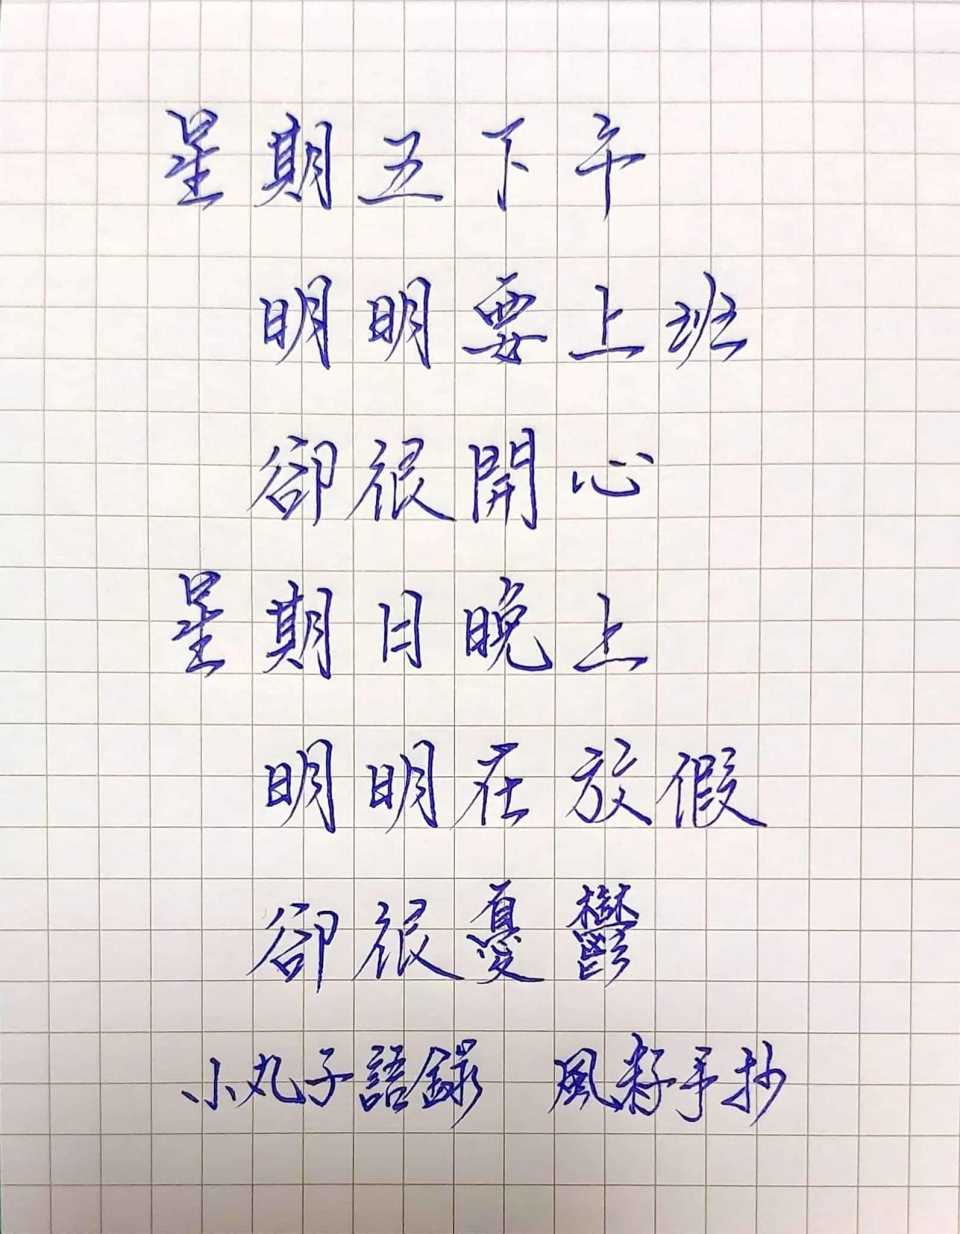 星期五下午
明明要上班
卻很開心
星期日晚上
明明在放假
卻很憂鬱
小丸子語錄 風籽手抄